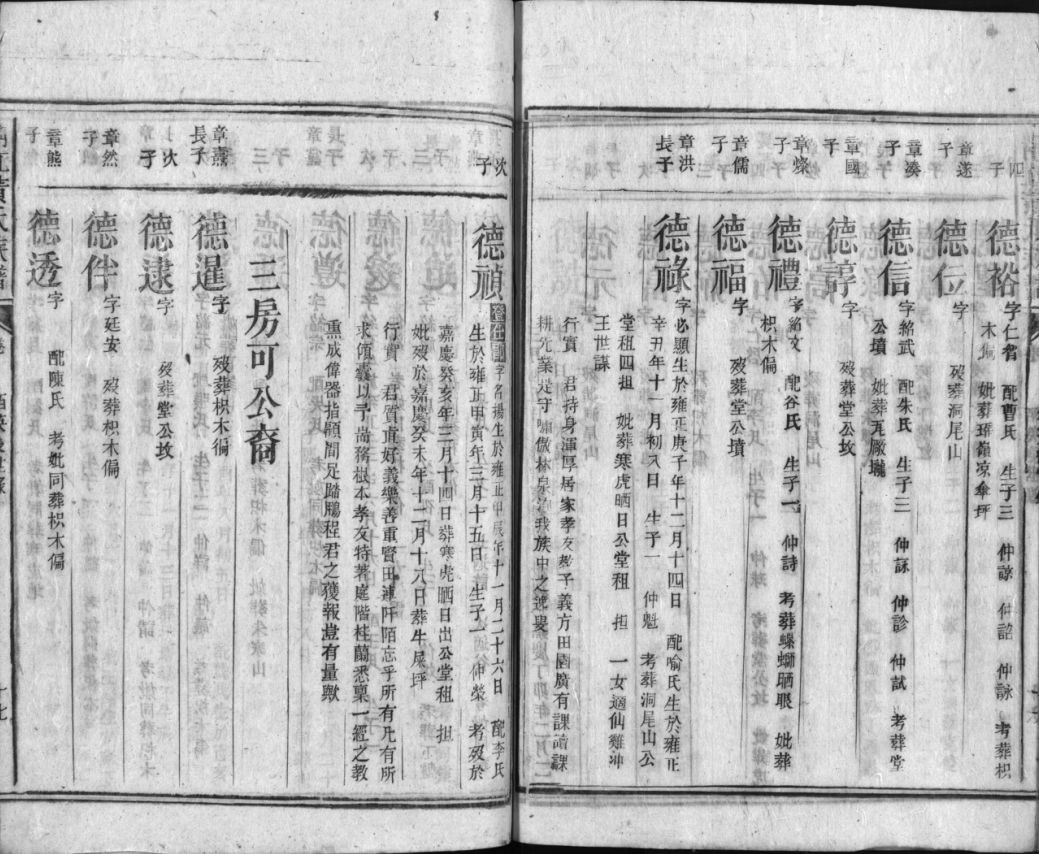 四子
德裕 字仁智 配曹氏 生子三 仲諒 仲詔 仲詠 考葬枳
木偏 妣葬 嶺凉傘坪
章遂子
德位 字 歿葬洞尾山
章湊子
德信 字紹武 配朱氏 生子三 仲詠 仲診 仲試 考葬堂
公墳 妣葬瓦廠壠
章國子
德諄 字 歿葬堂公坟
章燦子
德禮 字紹文 配谷氏 生子一 仲詩 考葬螺螄晒眼 妣葬
枳木偏
章儒子
德福 字 歿葬堂公墳
章洪長子
德祿 字必顯生於雍正庚子年十二月十四日 配喻氏生於雍正
辛丑年十一月初八日 生子一 仲魁 考葬洞尾山公
堂租四担 妣葬寒虎晒日公堂租 担 一女適仙雞冲
王世謀
行實 君持身渾厚居家孝友教子義方田園廣有課讀課
耕先業是守嘯傲林泉 我族中之逸叟
次子
德禎 登仕郎字名揚生於雍正甲辰年十一月二十六日 配李氏
生於雍正甲寅年三月十五日 生子一 仲榮 考歿於
嘉慶癸亥年三月十四日葬寒虎晒日出公堂租 担
妣歿於嘉慶癸未年十二月十八日葬牛屎坪
行實 君質直好義樂善重賢田連阡陌忘乎所有凡有所
求 義以予 蒋根本孝友特著庭階桂蘭悉稟一經之教
熏成偉器指顧間足躋鵬程君之獲報豈有量歟
三房可公裔
章燾長子
德暹 字 歿葬枳木偏
次子
德逮 字 歿葬堂公坟
章然子
德件 字廷安 歿葬枳木偏
章熊子
德透 字 配陳氏 考妣同葬枳木偏